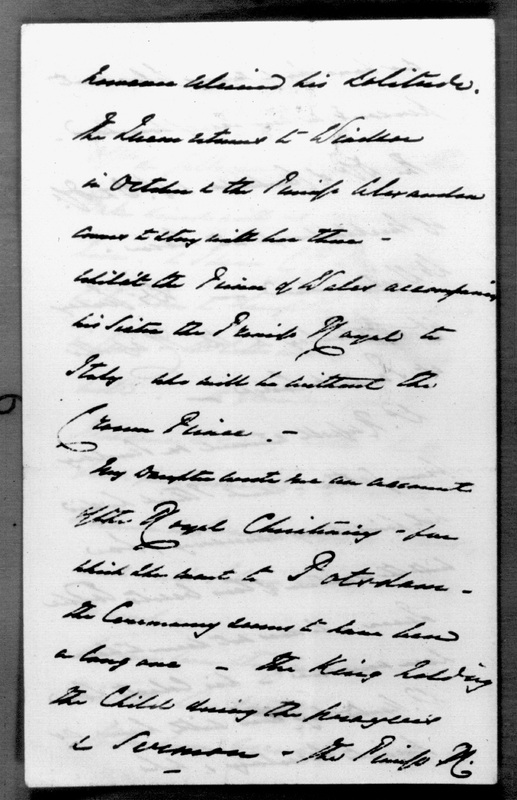 his Solitude.
The Queen returns to Windsor
in October & the Princess Alexandra
comes to stay with her there –
whilst the Prince of Wales accompanies
his Sister the Princess Royal to
Italy who will be without the
Crown Prince. –
My Daughter wrote me an account
of the Royal Christening – for
which she went to Potsdam –
the Ceremony seems to have been
a long one – the King holding
the Child during the prayers
& Sermon – the Princess R.